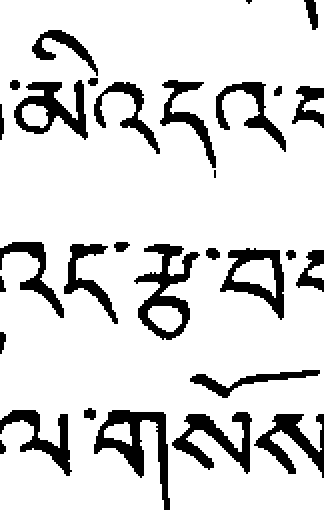 ་མི་འདའ་
འང་རྩ་བ་
ལ་གསོས